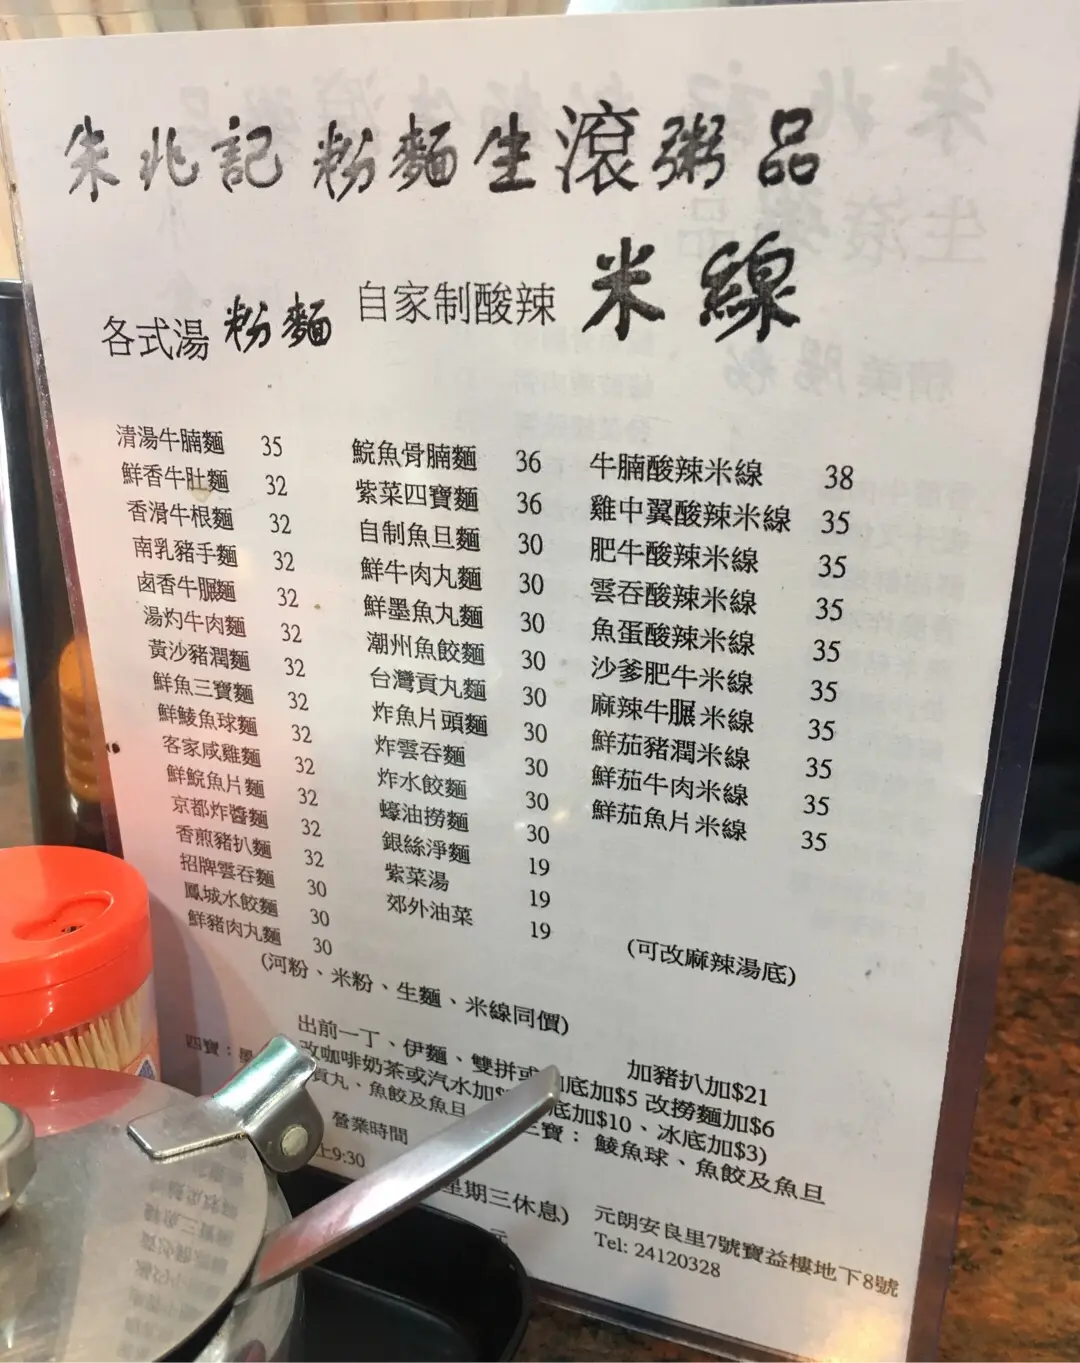 朱兆記粉麵生滾粥品
各式湯粉麵
自家制酸辣米線
清湯牛腩麵 35
鮮香牛肚麵 32
香滑牛根麵 32
南乳豬手麵 32
鹵香牛𦟌麵 32
湯灼牛肉麵 32
黃沙豬潤麵 32
鮮魚三寶麵 32
鮮鯪魚球麵 32
客家咸雞麵 32
鮮鯇魚片麵 32
京都炸醬麵 32
香煎豬扒麵 32
招牌雲吞麵 30
鳳城水餃麵 30
鮮豬肉丸麵 30
鯇魚骨腩麵 36
紫菜四寶麵 36
自制魚旦麵 30
鮮牛肉丸麵 30
鮮墨魚丸麵 30
潮州魚餃麵 30
台灣貢丸麵 30
炸魚片頭麵 30
炸雲吞麵 30
炸水餃麵 30
蠔油撈麵 30
銀絲淨麵 19
紫菜湯 19
郊外油菜 19
牛腩酸辣米線 38
雞中翼酸辣米線 35
肥牛酸辣米線 35
雲吞酸辣米線 35
魚蛋酸辣米線 35
沙爹肥牛米線 35
麻辣牛𦟌米線 35
鮮茄豬潤米線 35
鮮茄牛肉米線 35
鮮茄魚片米線 35
(可改麻辣湯底)
(河粉、米粉、生麵、米線同價)
出前一丁、伊麵、雙拼或 底加$5 改撈麵加$6
加豬扒加$21
改咖啡奶茶或汽水加$ 底加$10、冰底加$3)
四寶： 貢丸、魚餃及魚旦
三寶：鯪魚球、魚餃及魚旦
營業時間
上9:30
星期三休息)
元朗安良里7號寶益樓地下8號
Tel: 24120328